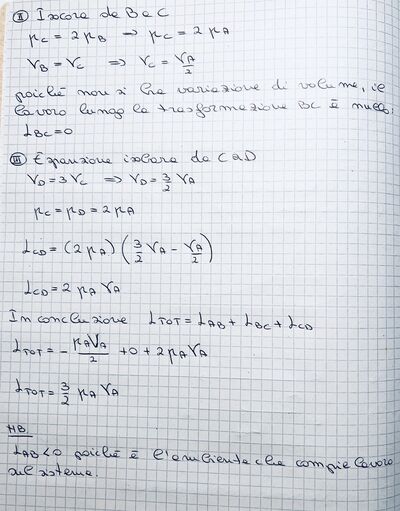 II Isocora da B a C
pC = 2 pB → pC = 2 pA
VB = VC ⇒ VC = VA/2
poiché non si ha variazione di volume, il
lavoro lungo la trasformazione BC è nullo:
LBC = 0
III Espansione isobara da C a D
VD = 3 VC ⇒ VD = 3/2 VA
pC = pD = 2 pA
LCD = (2 pA) (3/2 VA - VA/2)
LCD = 2 pA VA
In conclusione LTOT = LAB + LBC + LCD
LTOT = - pAVA/2 + 0 + 2 pA VA
LTOT = 3/2 pA VA
NB
LAB < 0 poiché è l'ambiente che compie lavoro
sul sistema.